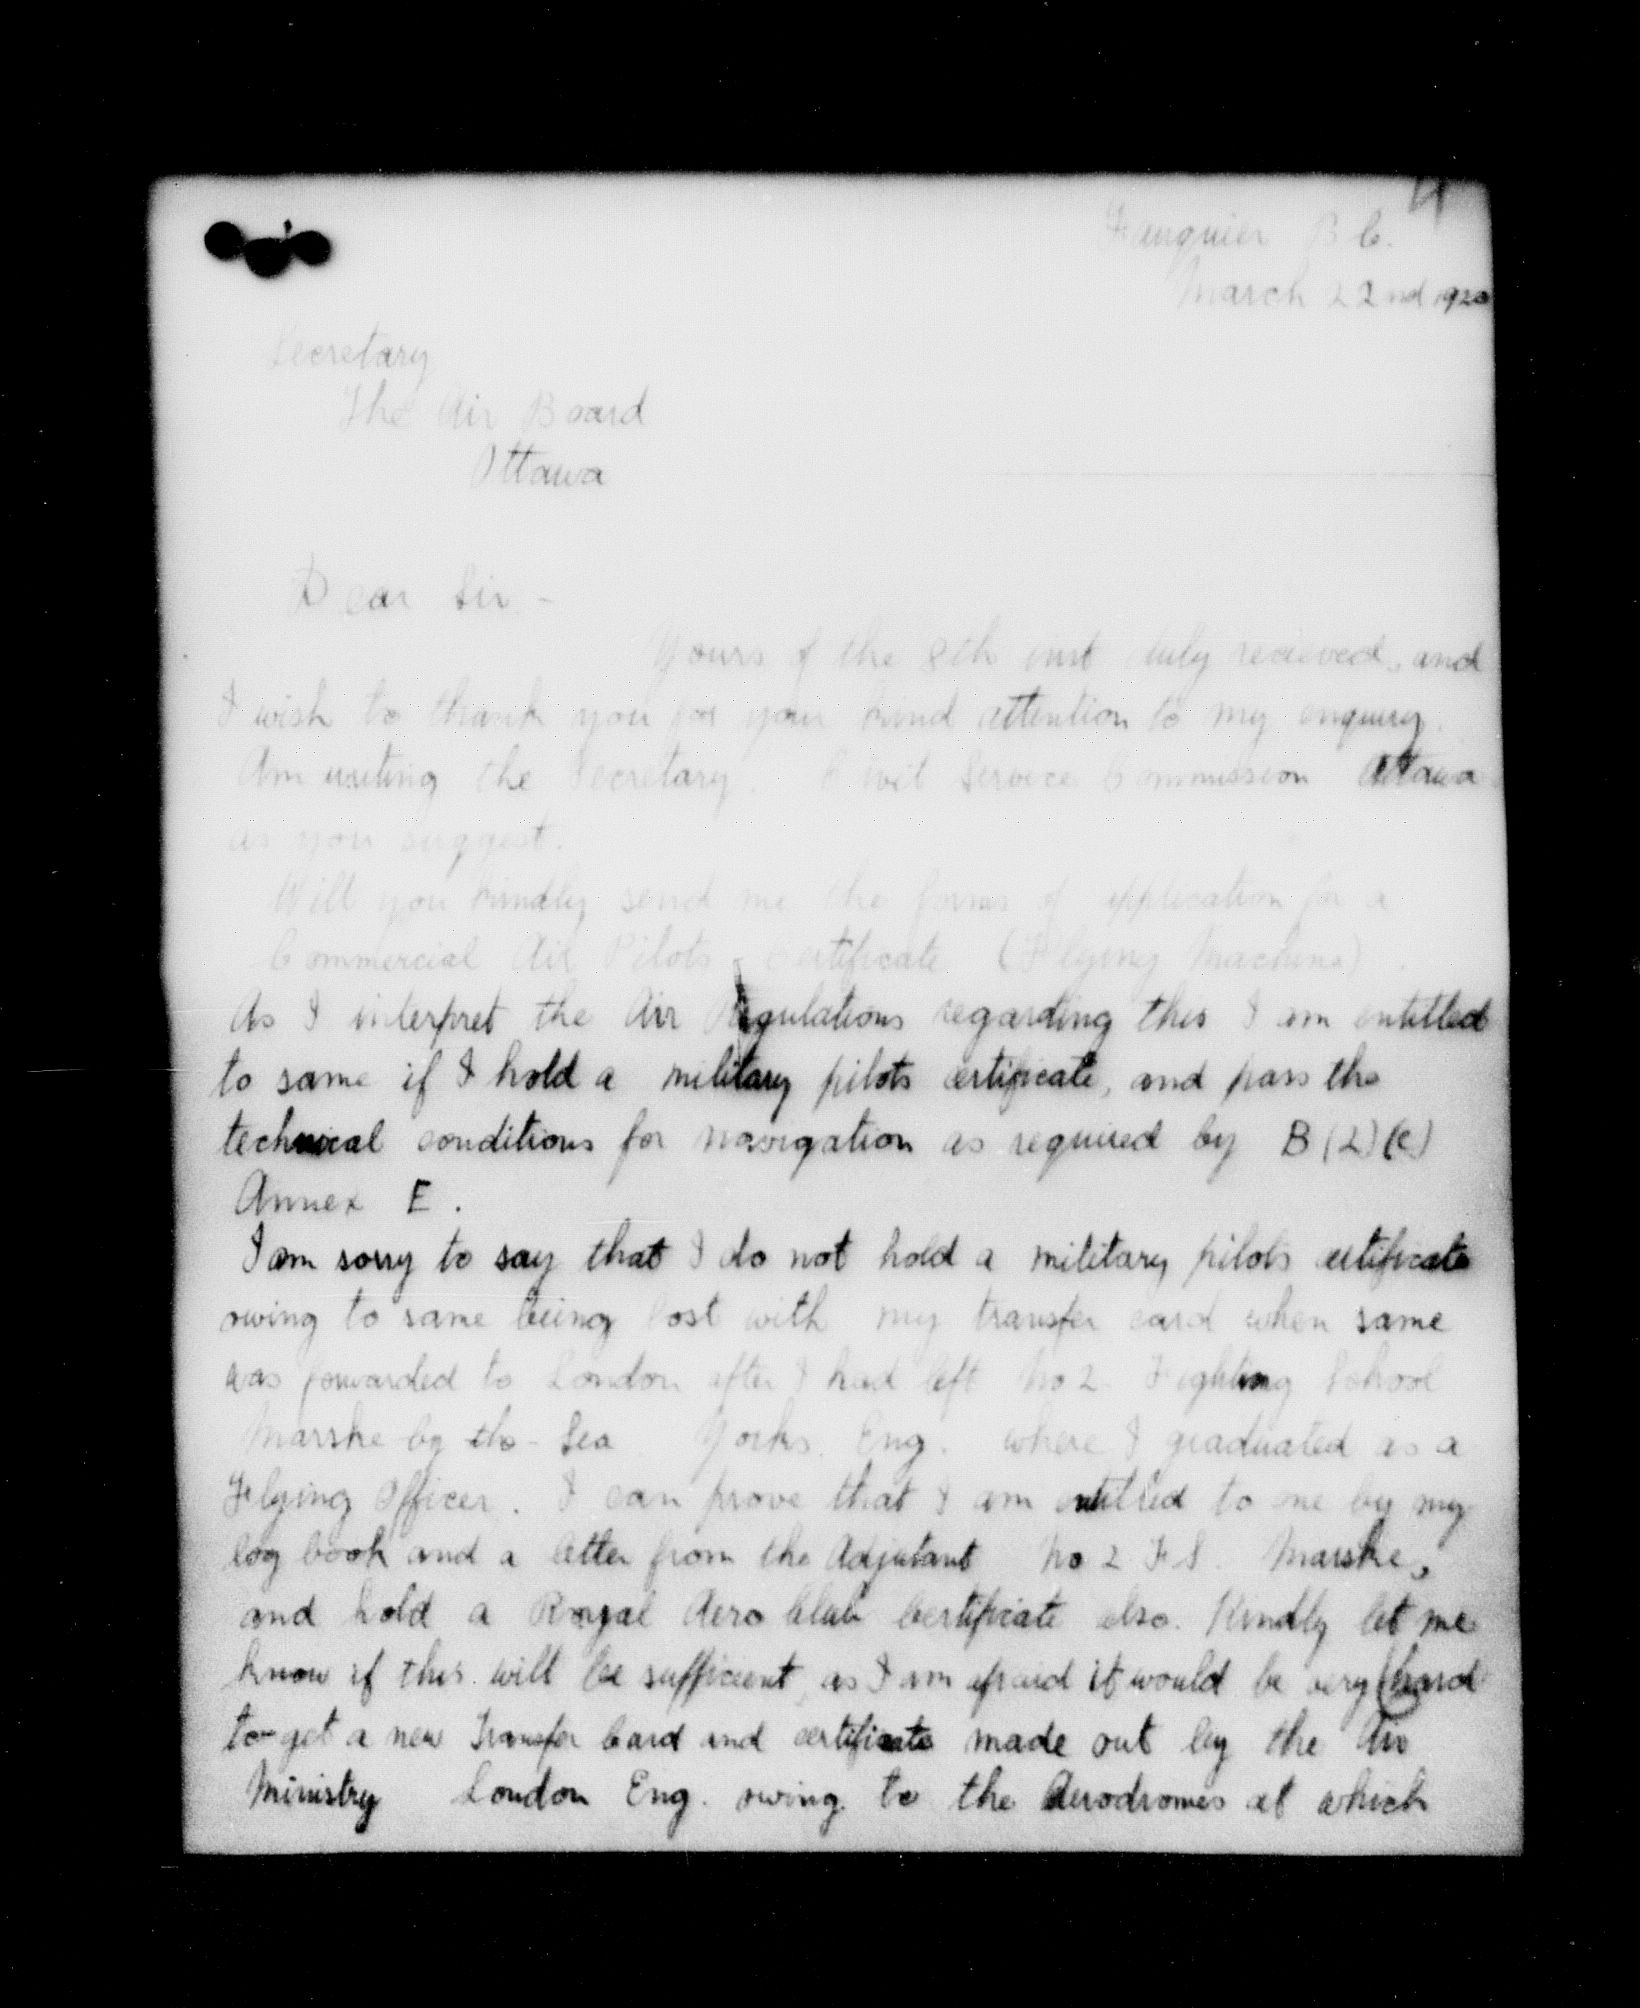 4
Fauquier B C.
March 22nd 1920
Secretary
The Air Board
Ottawa
Dear Sir -
Yours of the 8th inst duly recieved, and
I wish to thank you for your kind attention to my enquiry.
Am writing the Secretary. Civil Service Commission Ottawa
as you suggest.
Will you kindly send me the forms of application for a
Commercial Air Pilots Certificate (Flying Machine).
As I interpret the Air Regulations regarding this I am entitled
to same if I hold a military pilots certificate, and pass the
technical conditions for navigation as required by B(2)(c)
Annex E.
I am sorry to say that I do not hold a military pilots certificate
owing to same being lost with my transfer card when same
was forwarded to London after I had left No 2 Fighting School
Marske-by-the-Sea Yorks. Eng. where I graduated as a
Flying Officer. I can prove that I am entitled to one by my
log book and a letter from the Adjutant No 2 F.S. Marske,
and hold a Royal Aero Club Certificate also. Kindly let me
know if this will be sufficient, as I am afraid it would be very hard
to get a new Transfer Card and certificate made out by the Air
Ministry London Eng. owing to the Aerodromes at which